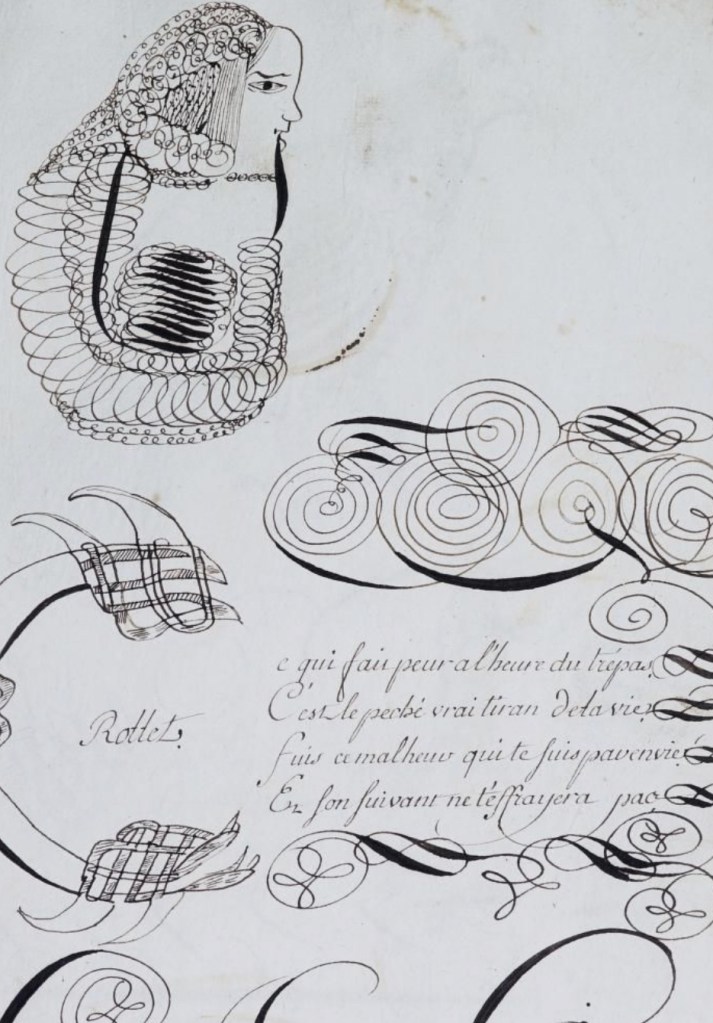 Rollet.
e qui fait peur a l'heure du trépas,
C'est le peché vrai tiran de ta vie,
fuis ce malheur qui te suis par envie
Et son suivant ne t'effrayera pas